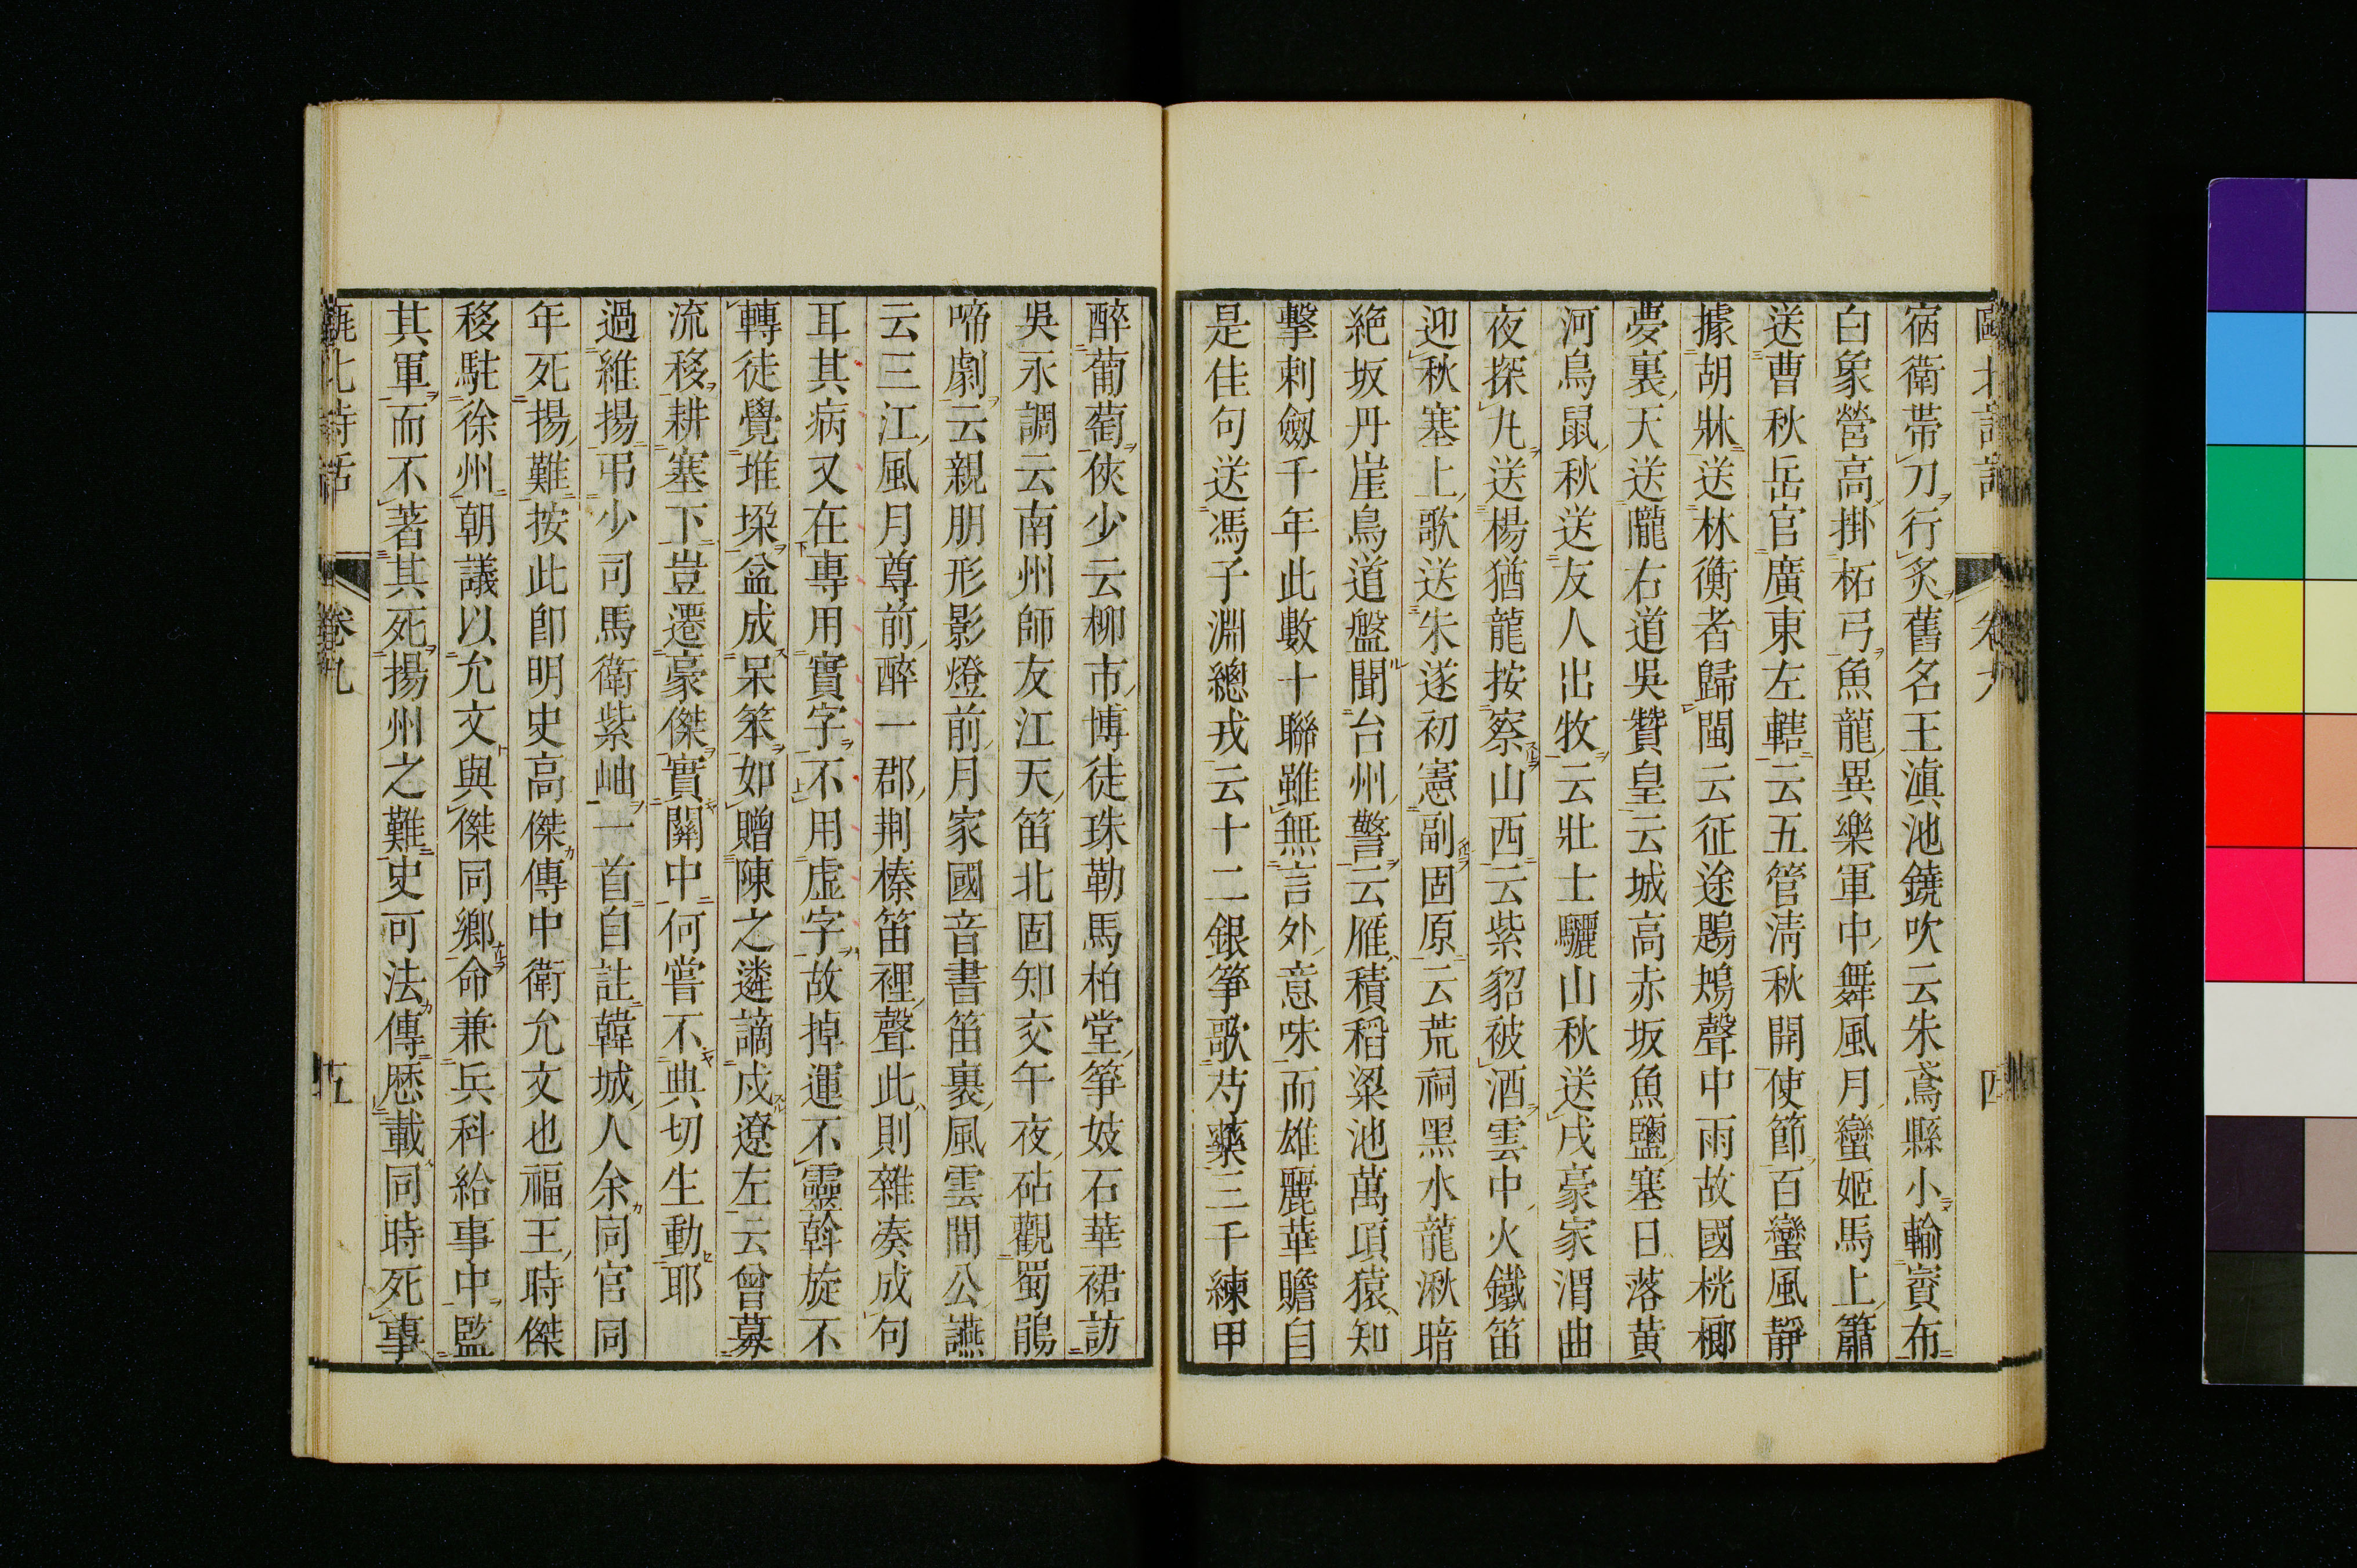 宿衛帶刀行炙舊名王滇池鐃吹云朱鳶縣小輸賨布
白象營高掛柘弓魚龍異樂軍中舞風月蠻姬馬上簫
送曹秋岳官廣東左轄云五管淸秋開使節百蠻風靜
據胡牀送林衡者歸閩云征途鶗鴂聲中雨故國桄榔
夢裏天送隴右道吳贊皇云城高赤坂魚鹽塞日落黃
河鳥鼠秋送友人出牧云壯士驪山秋送戍豪家渭曲
夜探丸送楊猶龍按察山西云紫貂被酒雲中火鐵笛
迎秋塞上歌送朱遂初憲副固原云荒祠黑水龍湫暗
絶坂丹崖鳥道盤聞台州警云雁積稻粱池萬頃猿知
擊刺劔千年此數十聯雖無言外意味而雄麗華贍自
是佳句送馮子淵總戎云十二銀箏歌芍藥三千練甲
卷九
四
醉葡萄俠少云柳市博徒珠勒馬柏堂箏妓石華裙訪
吳永調云南州師友江天笛北固知交午夜砧觀蜀鵑
啼劇云親朋形影燈前月家國音書笛裏風雲間公讌
云三江風月尊前醉一郡荆榛笛裡聲此則雜奏成句
耳其病又在專用實字不用虛字故掉運不靈斡旋不
轉徒覺堆垜盆成呆笨如贈陳之遴謫戍遼左云曾募
流移耕塞下豈遷豪傑實關中何嘗不典切生動耶
過維揚弔少司馬衛紫岫一首自註韓城人余同官同
年死揚難按此卽明史高傑傳中衛允文也福王時傑
移駐徐州朝議以允文與傑同鄉命兼兵科給事中監
其軍而不著其死揚州之難史可法傳歷載同時死事
甌北詩話
卷九
五